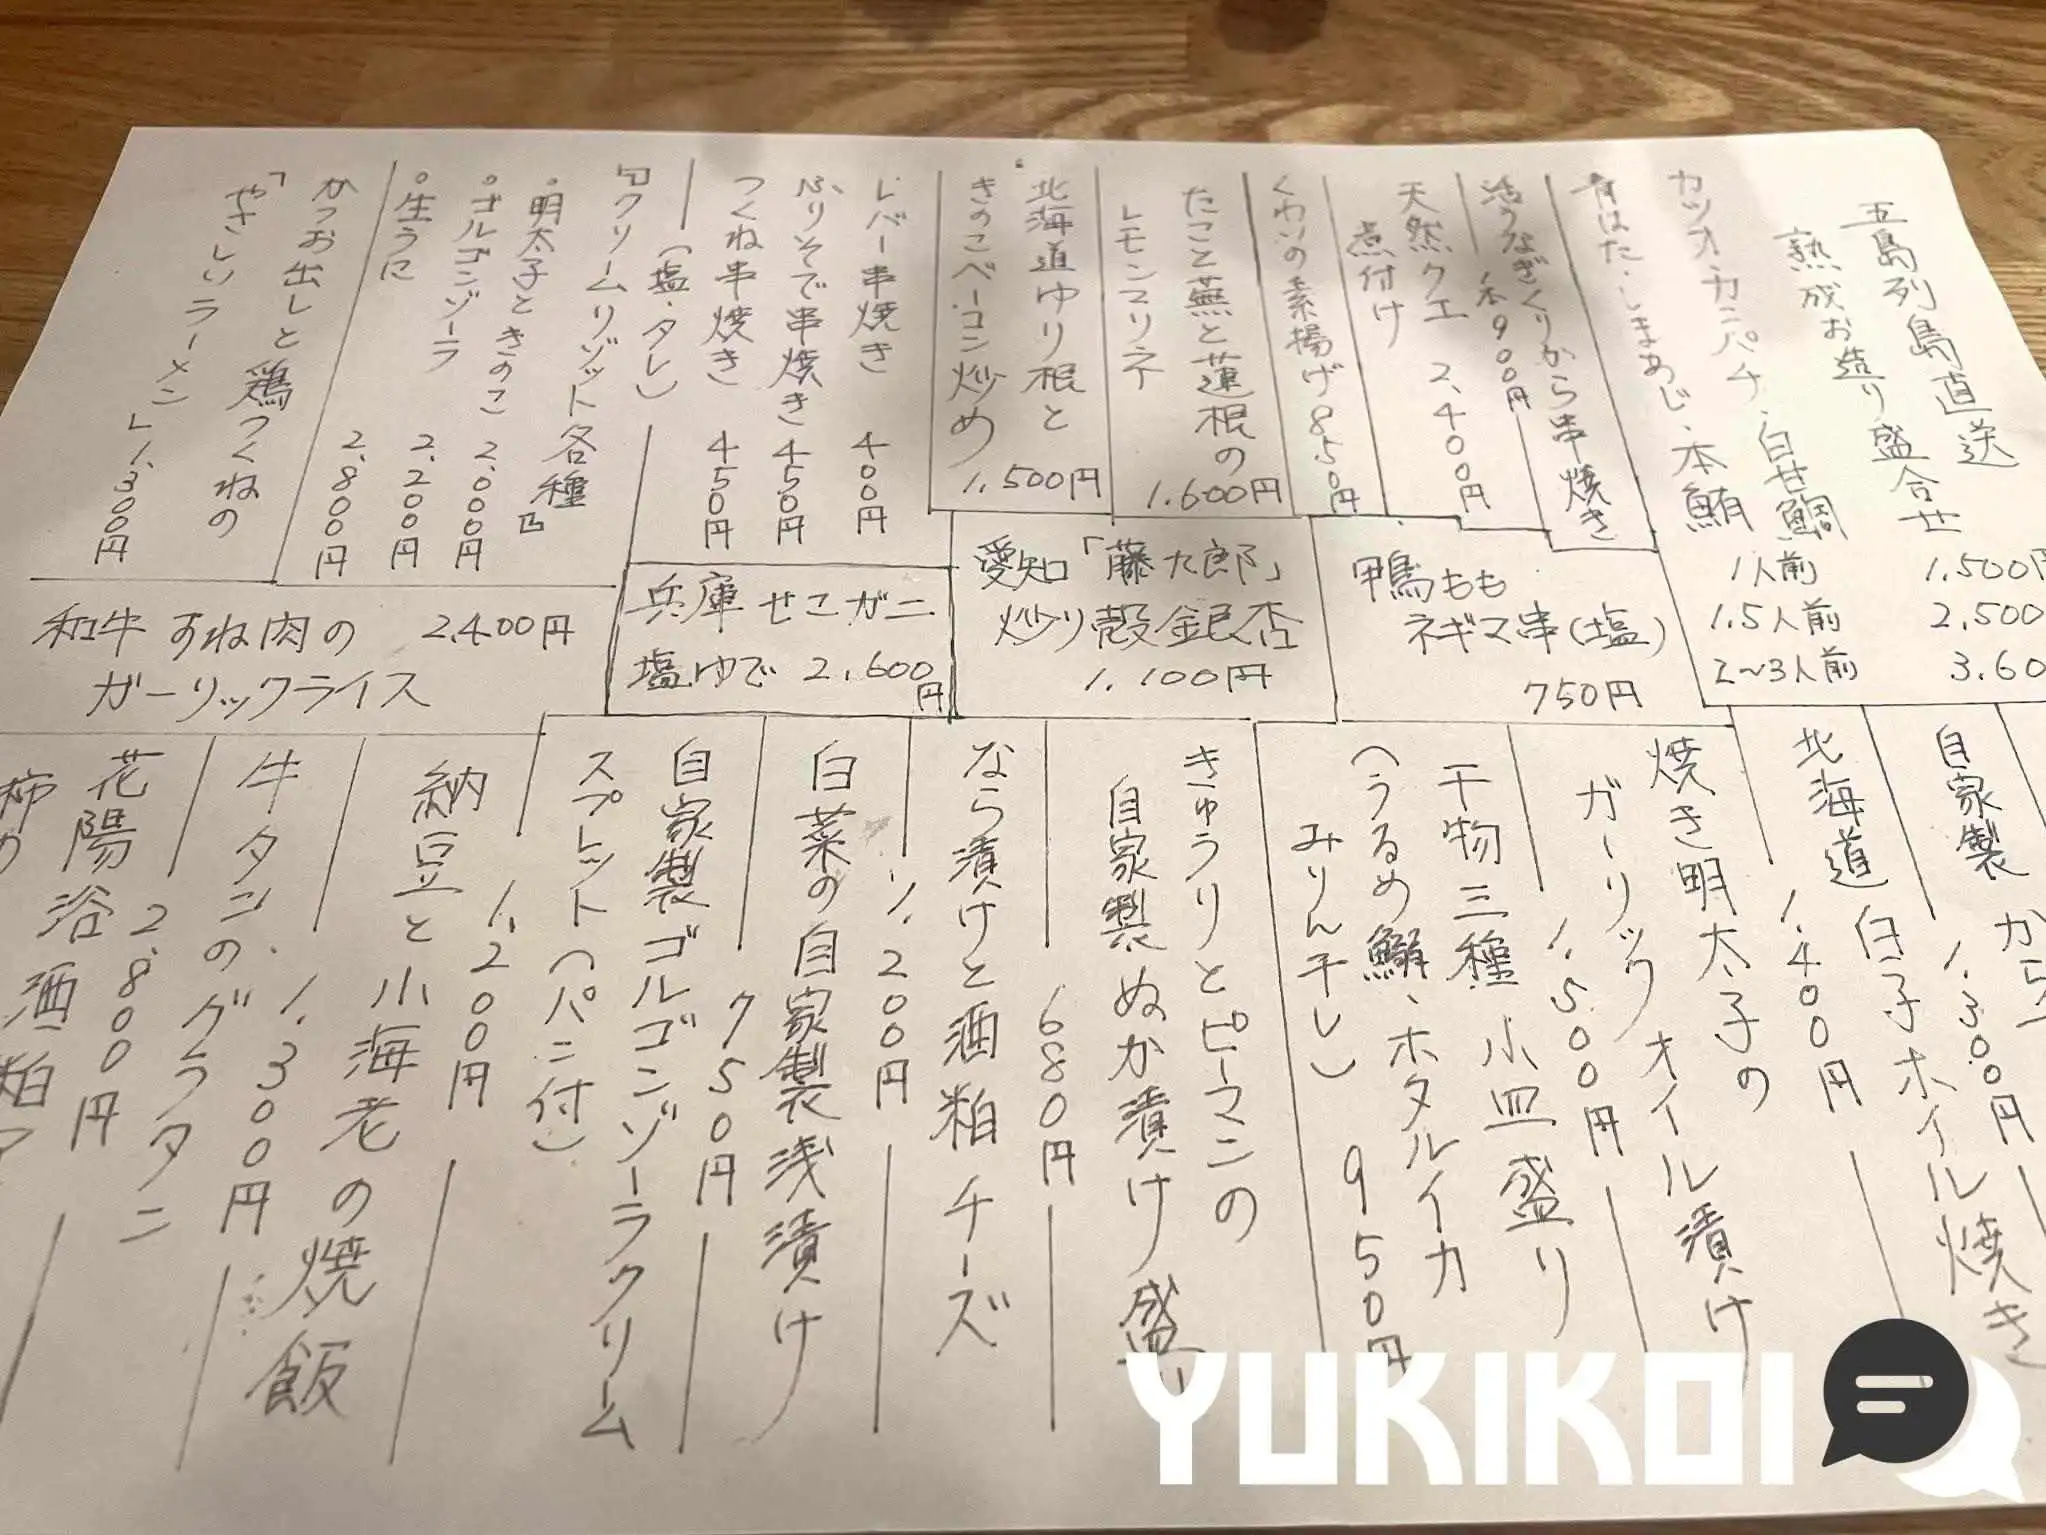 五島列島直送
熟成お造り盛合せ
カツオ・カンパチ・白甘鯛
青はた・しまあじ・本鮪
1人前 1.500円
1.5人前 2.500
2~3人前 3.60
活うなぎくりから串焼き
1本900円
天然クエ 2.400円
煮付け
くわいの素揚げ850円
たこと蕪と蓮根の
レモンマリネ 1.600円
北海道ゆり根と
きのこベーコン炒め 1.500円
レバー串焼き 400円
ぶりそで串焼き 450円
つくね串焼き 450円
(塩・タレ)
『クリームリゾット各種』
・明太子ときのこ 2.000円
・ゴルゴンゾーラ 2.200円
・生うに 2.800円
かつお出しと鶏つくねの
「やさしいラーメン」1.300円
鴨もも
ネギマ串(塩)
750円
愛知「藤九郎」
炒り殻銀杏
1.100円
兵庫せこガニ
塩ゆで 2.600円
和牛すね肉の 2.400円
ガーリックライス
自家製から
1.300円
北海道白子ホイル焼き
1.400円
焼き明太子の
ガーリックオイル漬け
1.500円
干物三種小皿盛り
(うるめ鰯、ホタルイカ
みりん干し) 950円
きゅうりとピーマンの
自家製ぬか漬け盛り
680円
なら漬けと酒粕チーズ
1.200円
白菜の自家製浅漬け
750円
自家製ゴルゴンゾーラクリーム
スプレット(パン付)
1.200円
納豆と小海老の焼飯
1.300円
牛タンのグラタン
2.800円
花陽浴酒粕
YUKIKOI